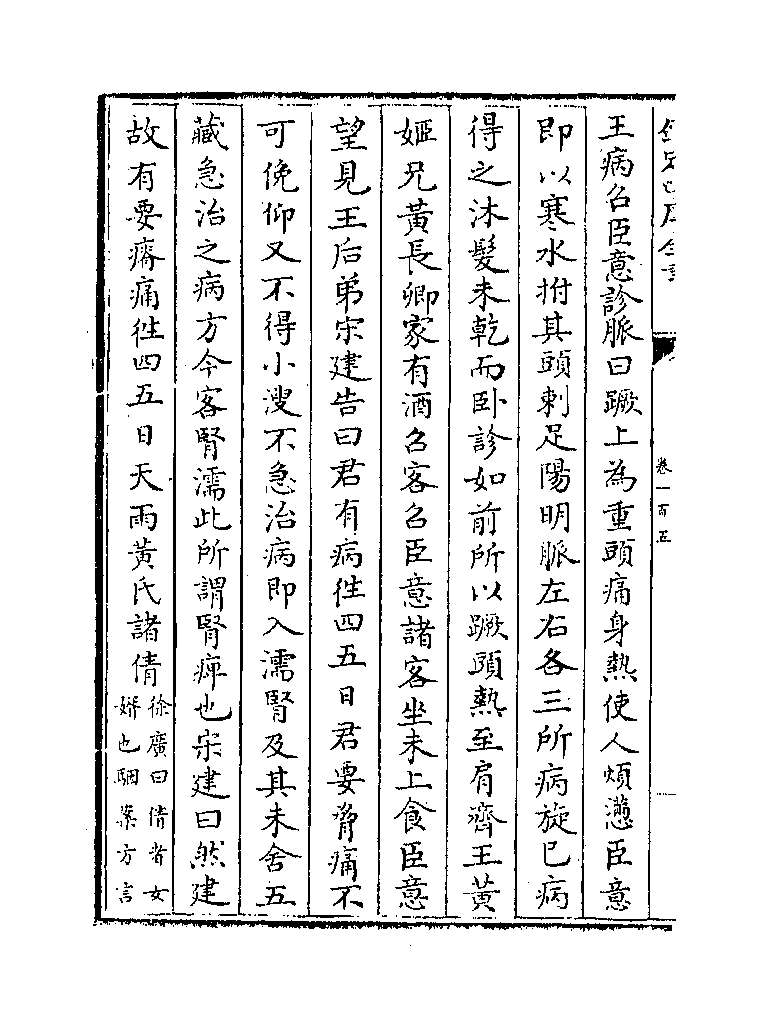 卷一百五
王病召臣意診脈曰蹶上為重頭痛身熱使人煩懣臣意
即以寒水拊其頭刺足陽明脈左右各三所病旋已病
得之沐髮未乾而卧診如前所以蹶頭熱至肩齊王黃
姬兄黃長卿家有酒召客召臣意諸客坐未上食臣意
望見王后弟宋建告曰君有病徃四五日君要脅痛不
可俛仰又不得小溲不急治病即入濡腎及其未舍五
藏急治之病方今客腎濡此所謂腎痺也宋建曰然建
故有要瘠痛徃四五日天雨黃氏諸倩
徐廣曰倩者女
婿也駰案方言